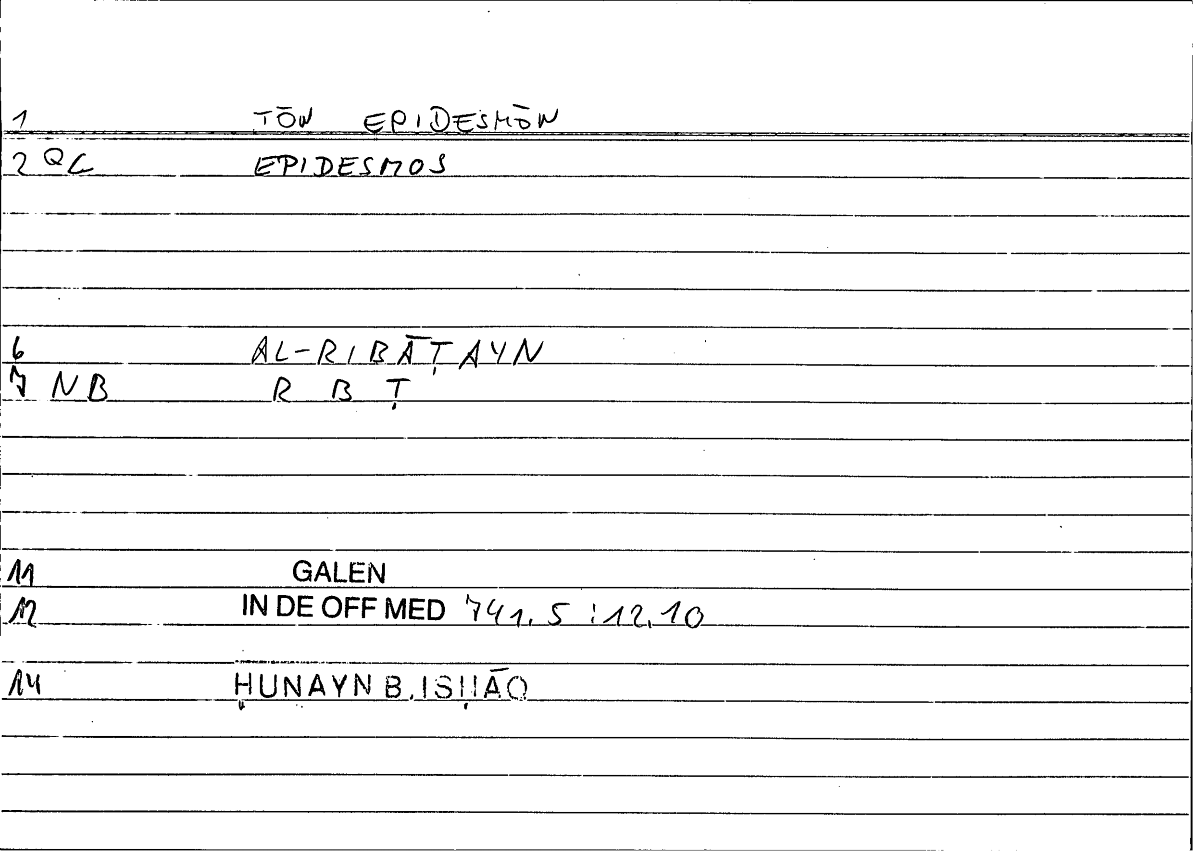 1 TŌN EPIDESMŌN
2 QC EPIDESMOS
6 AL-RIBĀṬAYN
7 NB R B Ṭ
11 GALEN
12 IN DE OFF MED 741,5 : 12,10
14 ḤUNAYN B. ISḤĀQ